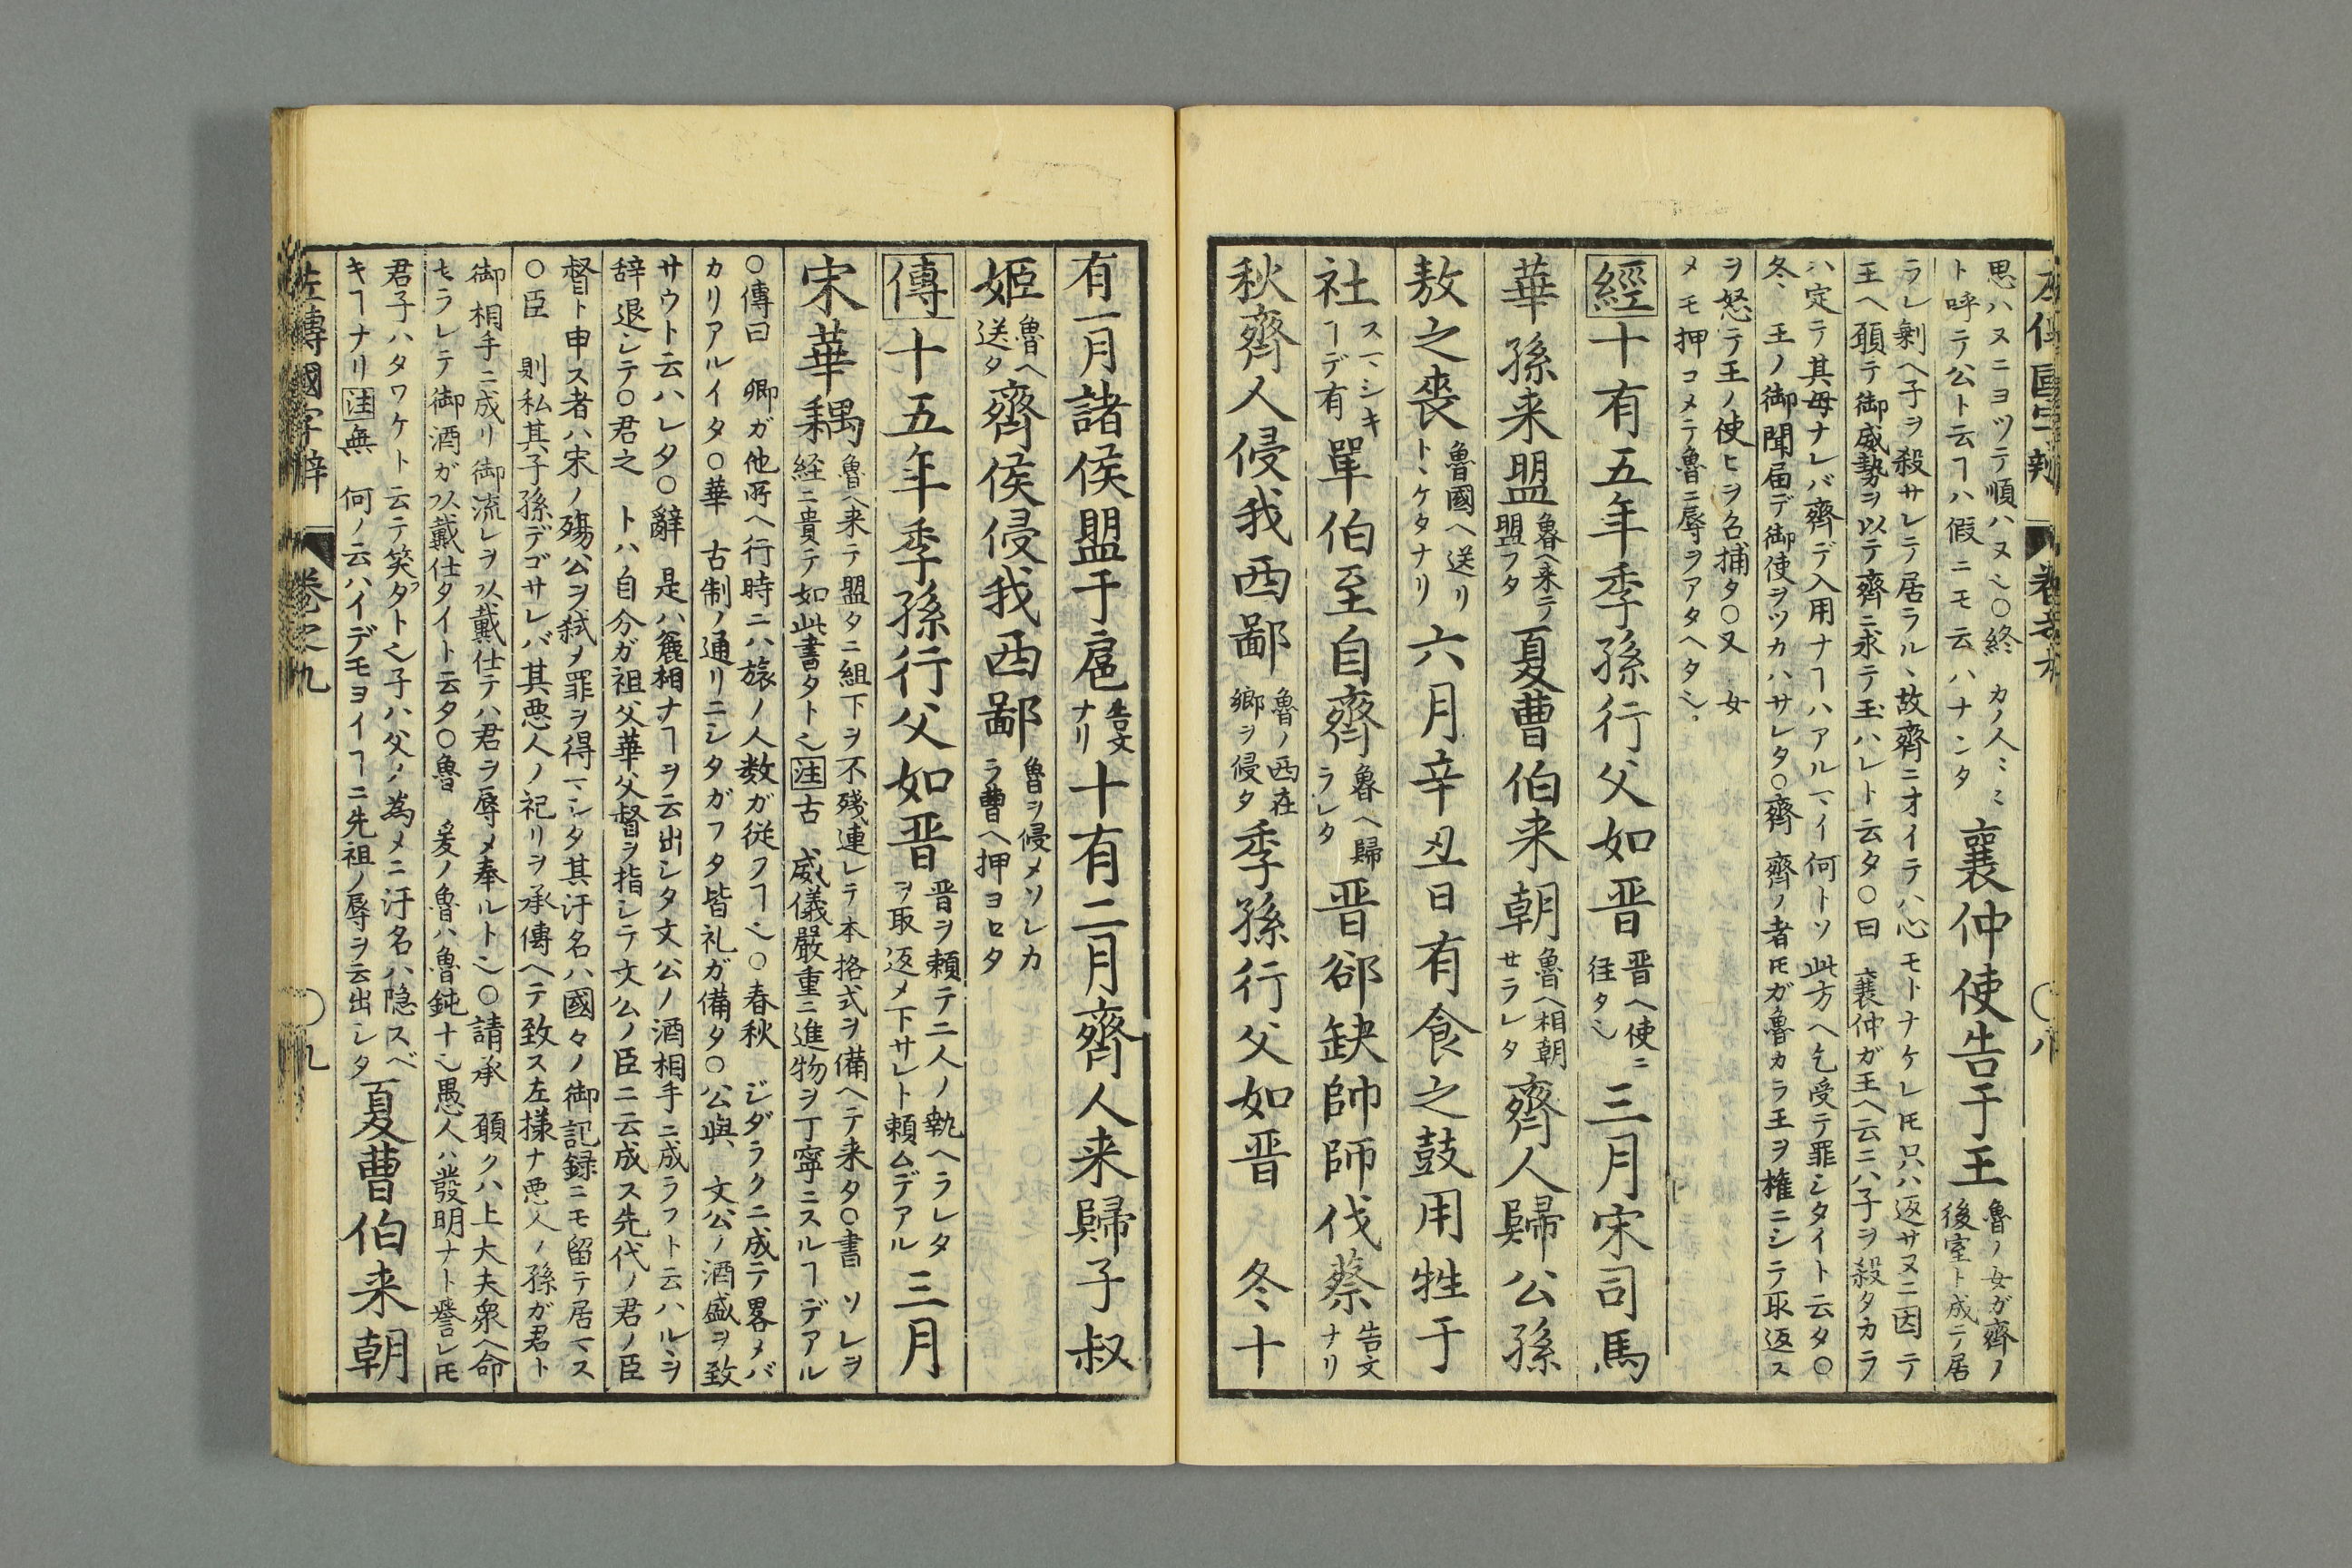 思ハヌニヨツテ順ハヌ〻〇終　カノ人〻〻
ト呼テ公ト云ヿハ假ニモ云ハナンタ
襄仲使告于王
魯ノ女ガ齊ノ
後室ト成テ居
ラレ剰ヘ子ヲ殺サレテ居ラル丶故齊ニオイテハ心モトナケレ𪜈只ハ返サヌニ因テ
王ヘ頼テ御威勢ヲ以テ齊ニ求テ玉ハレト云タ〇曰　襄仲ガ王ヘ云ニハ子ヲ殺タカラ
ハ定テ其母ナレバ齊デ入用ナヿハアルマイ何トソ此方ヘ乞受テ罪シタイト云タ〇
冬、王ノ御聞届デ御使ヲツカハサレタ〇齊　齊ノ者𪜈ガ魯カラ王ヲ権ニシテ取返ス
ヲ怒テ王ノ使ヒヲ召捕タ〇又　女
メモ押コメテ魯ニ辱ヲアタヘタ〻
經十有五年季孫行父如晋
晋ヘ使ニ
徃タ〻
三月宋司馬
華孫来盟
魯ヘ来テ
盟フタ
夏曹伯来朝
魯ヘ相朝
せラレタ
齊人歸公孫
敖之喪
魯國ヘ送リ
ト丶ケタナリ
六月辛丑日有食之鼓用牲于
社
スマシキ
ヿデ有
單伯至自齊
魯ヘ歸
ラレタ
晋郤缺帥師伐蔡
告文
ナリ
秋齊人侵我西鄙
魯ノ西在
郷ヲ侵タ
季孫行父如晋　冬十
有一月諸侯盟于扈
告文
ナリ
十有二月齊人来歸子叔
姫
魯ヘ
送タ
齊侯侵我西鄙
魯ヲ侵メソレカ
ラ曹ヘ押ヨせタ
傳十五年季孫行父如晋
晋ヲ頼テ二人ノ執ヘラレタ
ヲ取返メ下サレト頼ムデアル
三月
宋華耦
魯ヘ来テ盟タニ組下ヲ不殘連レテ本格式ヲ備ヘテ来タ〇書　ソレヲ
経ニ貴テ如此書タト〻注古　威儀嚴重ニ進物ヲ丁寧ニスルヿデアル
〇傳曰　卿ガ他所ヘ行時ニハ旅ノ人数ガ従フヿ〻〇春秋　ジダラクニ成テ畧メバ
カリアルイタ〇華　古制ノ通リニシタガフタ皆礼ガ備タ〇公與、文公ノ酒盛ヲ致
サウト云ハレタ〇辭　是ハ麁相ナヿヲ云出シタ文公ノ酒相手ニ成ラフト云ハルヽヲ
辞退シテ〇君之　トハ自分ガ祖父華父督ヲ指シテ文公ノ臣ニ云成ス先代ノ君ノ臣
督ト申ス者ハ宋ノ殤公ヲ弑ノ罪ヲ得マシタ其汙名ハ國々ノ御記録ニモ留テ居マス
〇臣　則私其子孫デゴサレバ其悪人ノ祀リヲ承傳ヘテ致ス左様ナ悪人ノ孫ガ君ト
御相手ニ成リ御流レヲ以戴仕テハ君ヲ辱メ奉ルト〻〇請承　願クハ上大夫衆ヘ命
セラレテ御酒ガ以戴仕タイト云タ〇魯　爰ノ魯ハ魯鈍ナ〻愚人ハ發明ナト誉レ𪜈
君子ハタワケト云テ笑タト〻子ハ父ノ為メニ汙名ハ隠スベ
キヿナリ注無　何ノ云ハイデモヨイヿニ先祖ノ辱ヲ云出シタ
夏曹伯来朝
左傳國字辯　卷之九　〇九